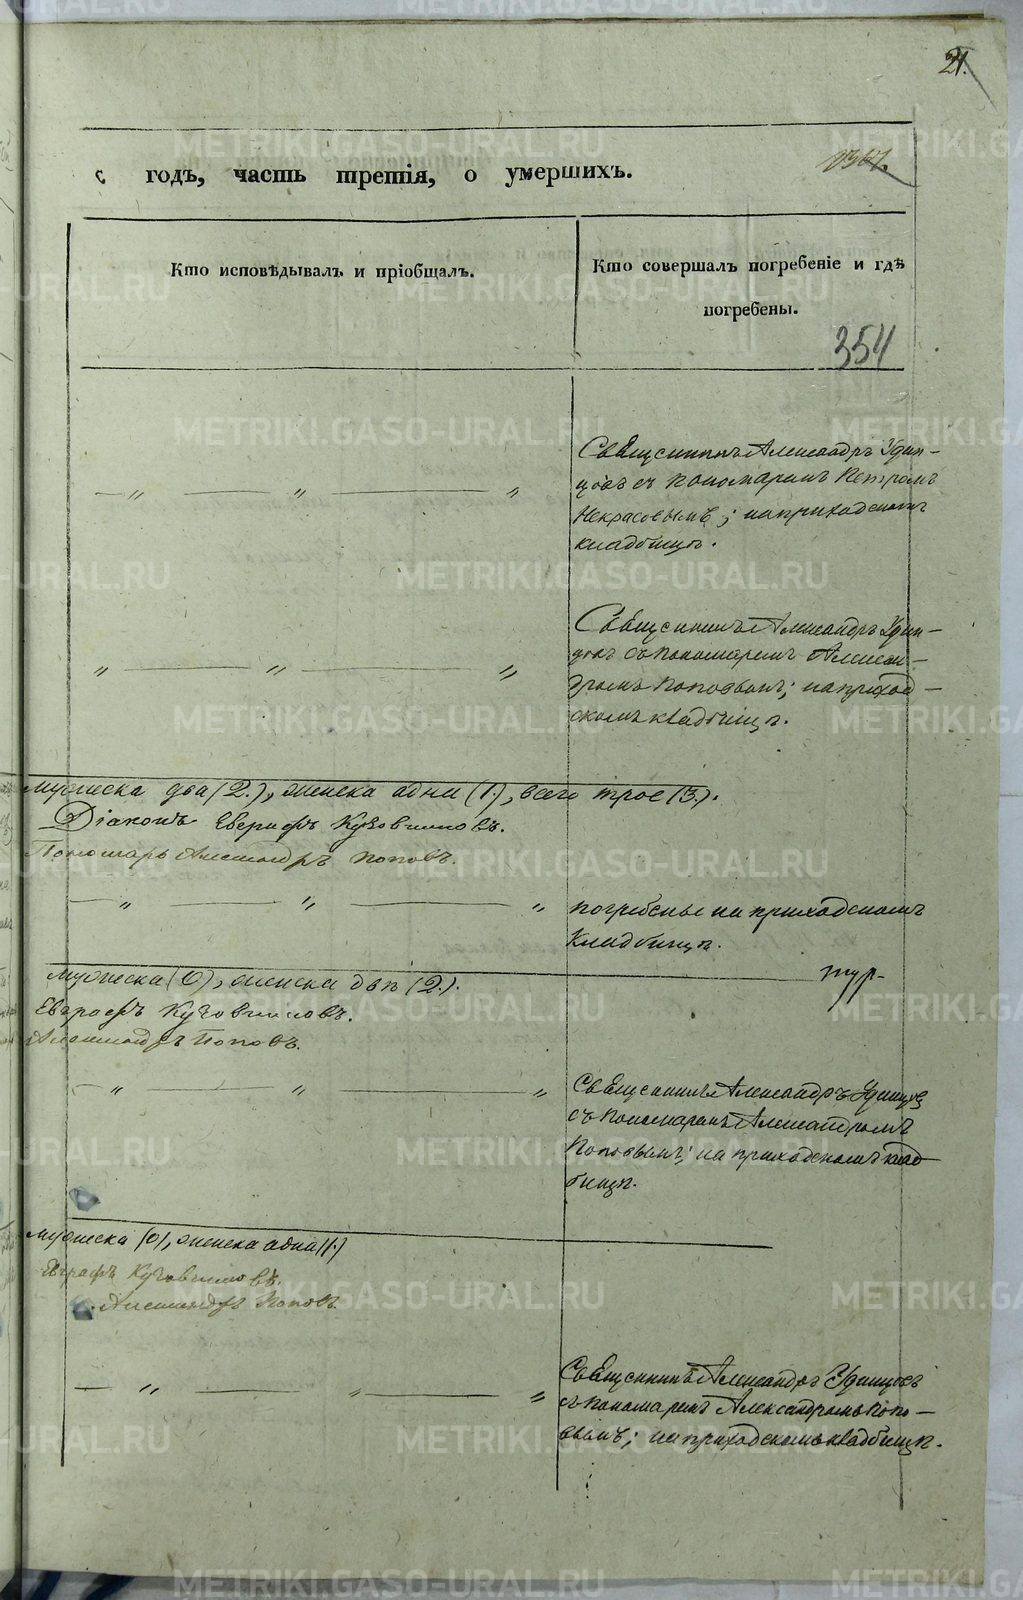 21.
годъ, часть третія, о умершихъ.
Кто исповѣдывалъ и пріобщалъ.
Кто совершалъ погребеніе и гдѣ
погребены.
354
Священникъ Александръ Удин-
цовъ съ пономаремъ Петромъ
Некрасовымъ; на приходскомъ
кладбищѣ.
Священникъ Александръ Удин-
цовъ съ пономаремъ Алексан-
дромъ Поповымъ; на приход-
скомъ кладбищѣ.
мужеска два (2.), женска одна (1.), всего трое (3.).
Діаконъ Кузовниковъ.
Пономарь Александръ Поповъ.
погребены на приходскомъ
кладбищѣ.
мужеска (0), женска двѣ (2.).
Кузовниковъ.
Александръ Поповъ.
Священникъ Александръ Удинцовъ
съ пономаремъ Александромъ
Поповымъ; на приходскомъ клад
бищѣ.
мужеска (0), женска одна (1.)
Кузовниковъ.
Александръ Поповъ.
Священникъ Александръ Удинцовъ
съ пономаремъ Александромъ Попо-
вымъ; на приходскомъ кладбищѣ.
METRIKI.GASO-URAL.RU